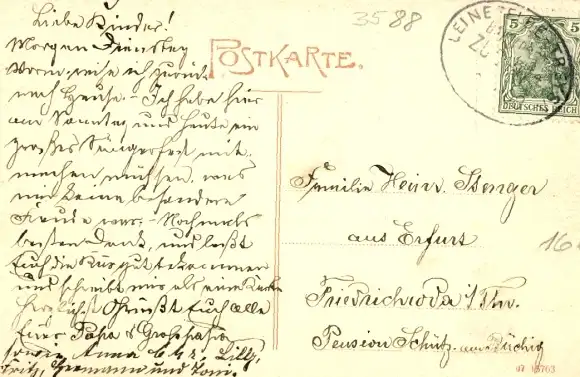 3588
POSTKARTE.
5 5
DEUTSCHES REICH
Liebe Kinder!
Morgen Dienstag
Vorm. reise ich zurück
nach Hause. – Ich habe hier
am Sonntag und heute ein
großes Sängerfest mit
machen müssen, was
mir keine besondere
Freude war. – Nochmals
besten Dank, und laßt
Euch die Kur gut bekommen
und schreibt mir als eine Karte
Herzlichst Grüßt Euch alle
Euer Papa & Großpapa
sowie Anna Lilly,
Fritz, Hermann und Toni.
Familie Heinr. Stenger
aus Erfurt
Friedrichroda i/Thr.
Pension Schütz
16
07 15763